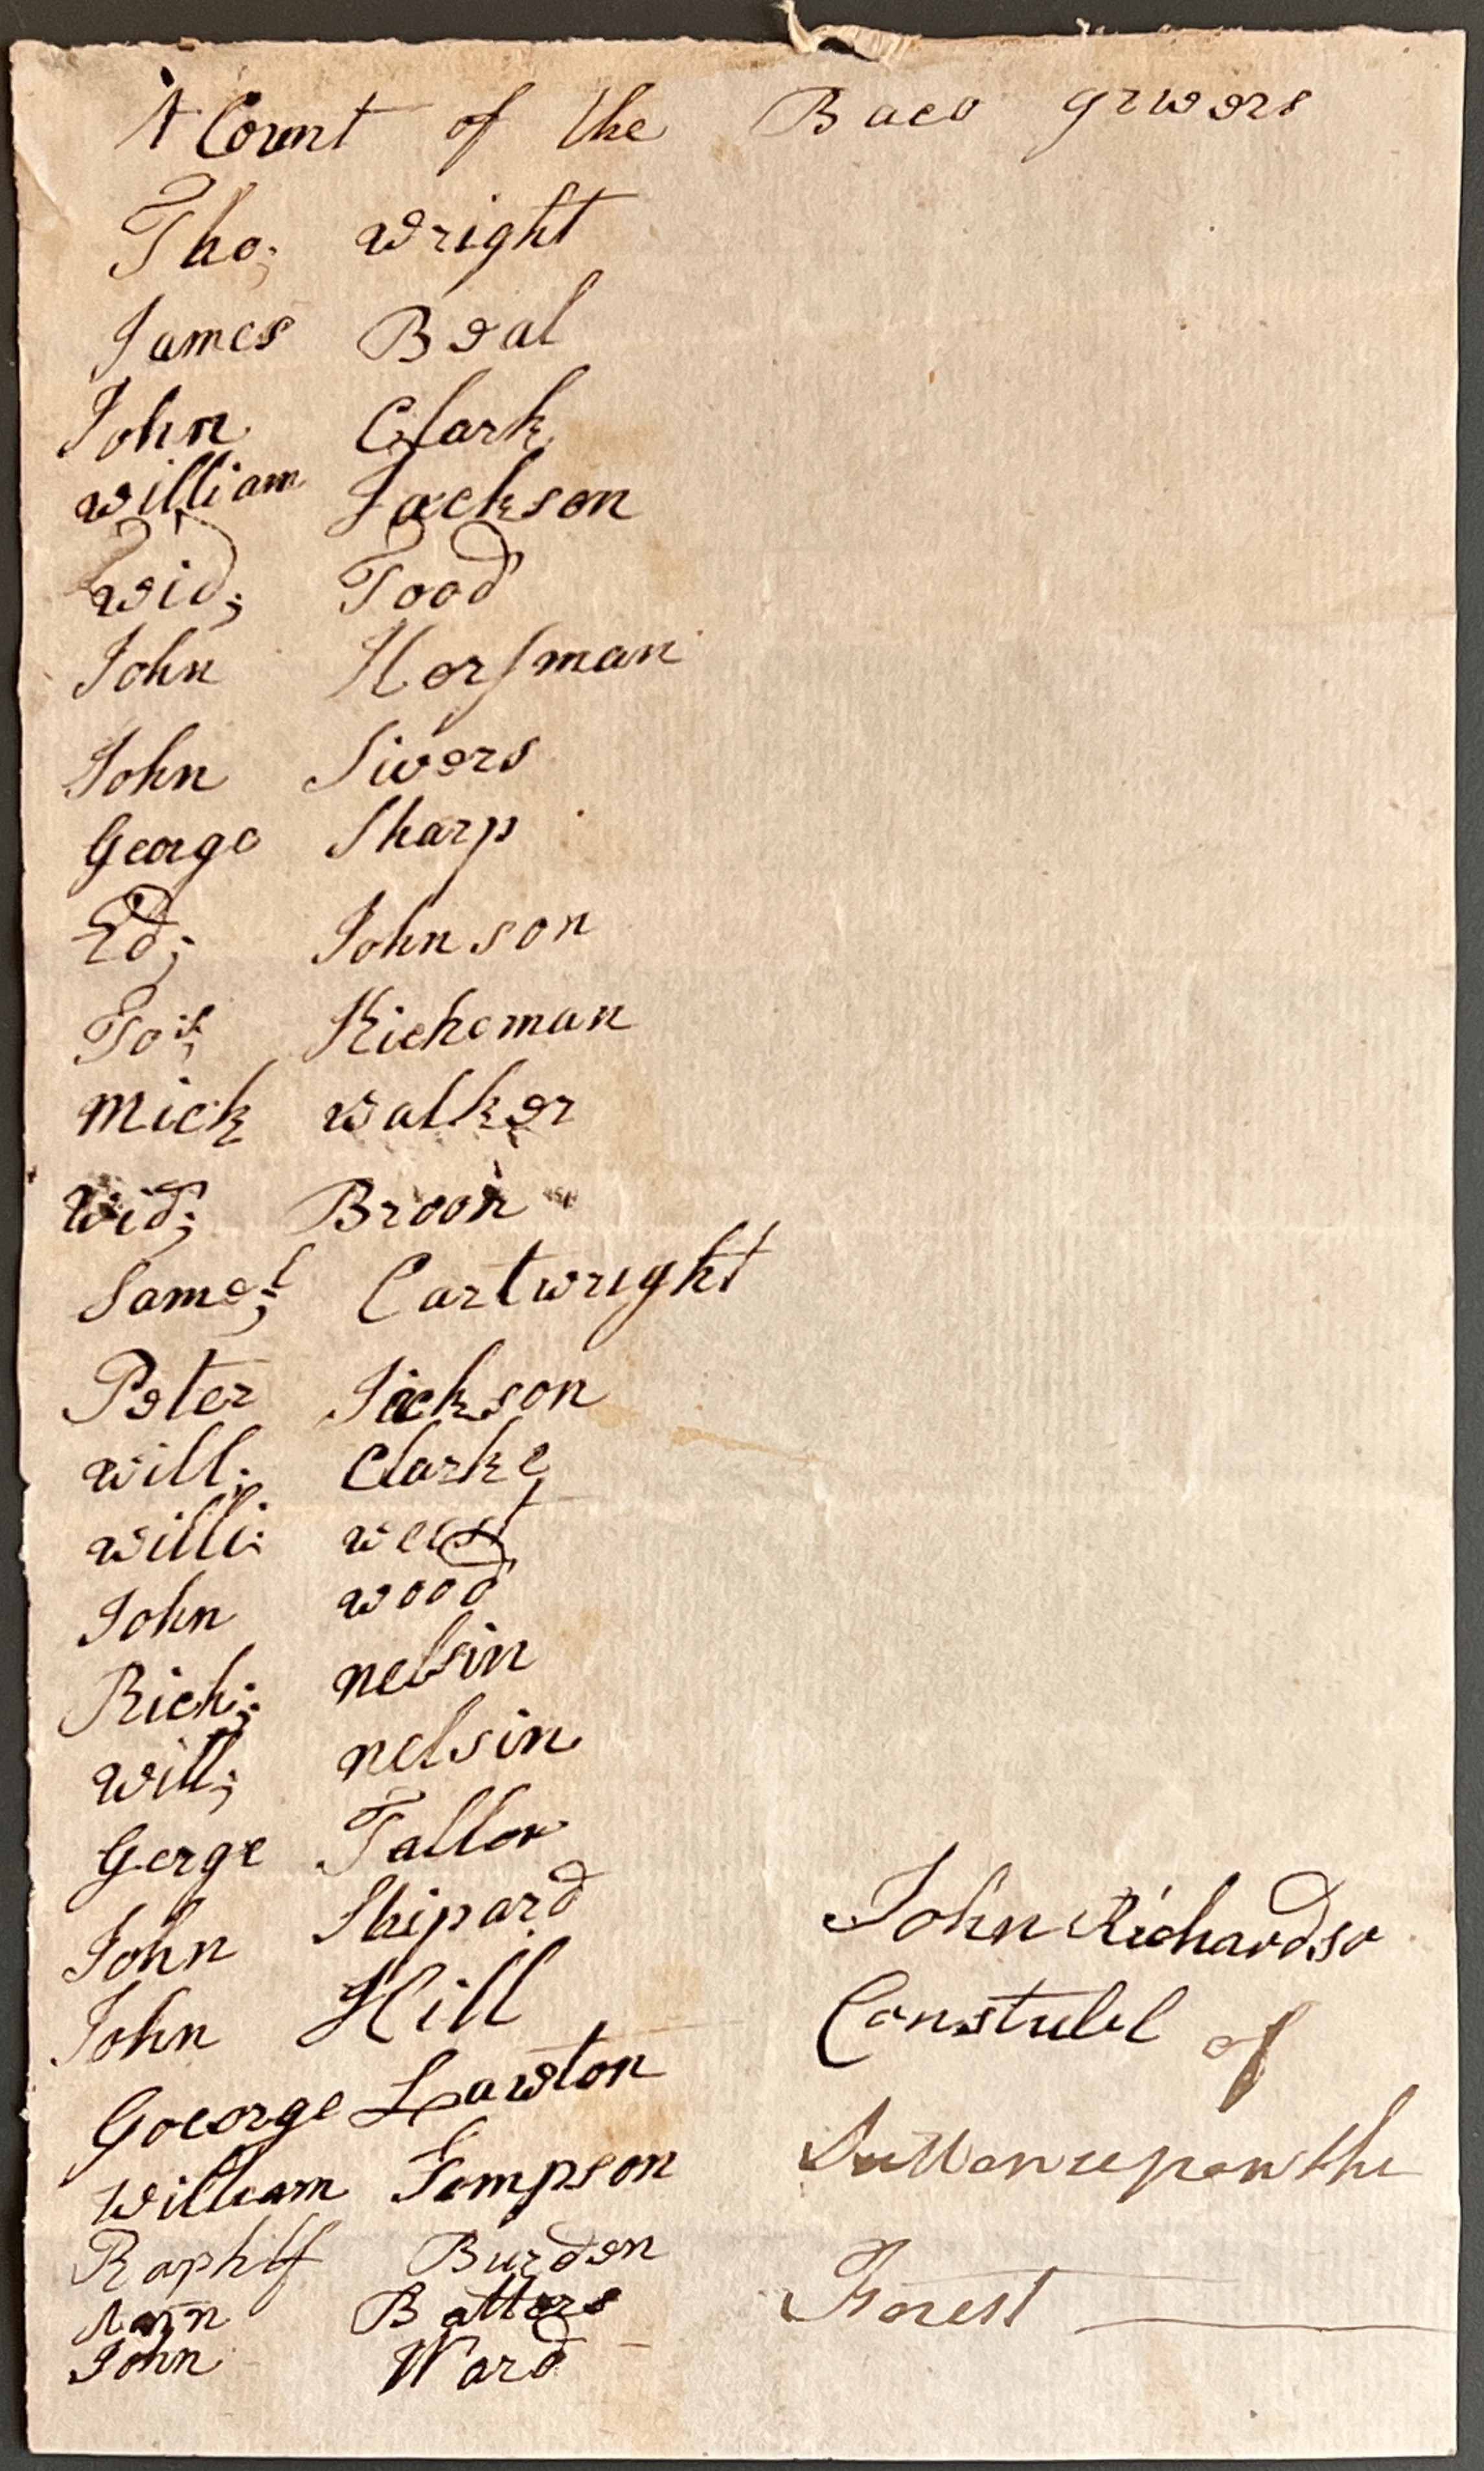 A Count of the Baco grwers
Tho; wright
James Beal
John Clark
william Jackson
wid; Tood
John Horsman
John Sivers
George Sharp
Ed; Johnson
Kicheman
Mick walker
wid; Broon
Samel; Cartwright
Peter Jackson
will; Clarke
willi: west
John wood
Rich; nelsin
will; nelsin
Gerge Tallor
John Shipard
John Hill
Goeorge Lawton
William Tompson
Raphlf Burden
Ann Batters
John Ward
John Richardso
Constubl of
Suttonuponthe
Forest